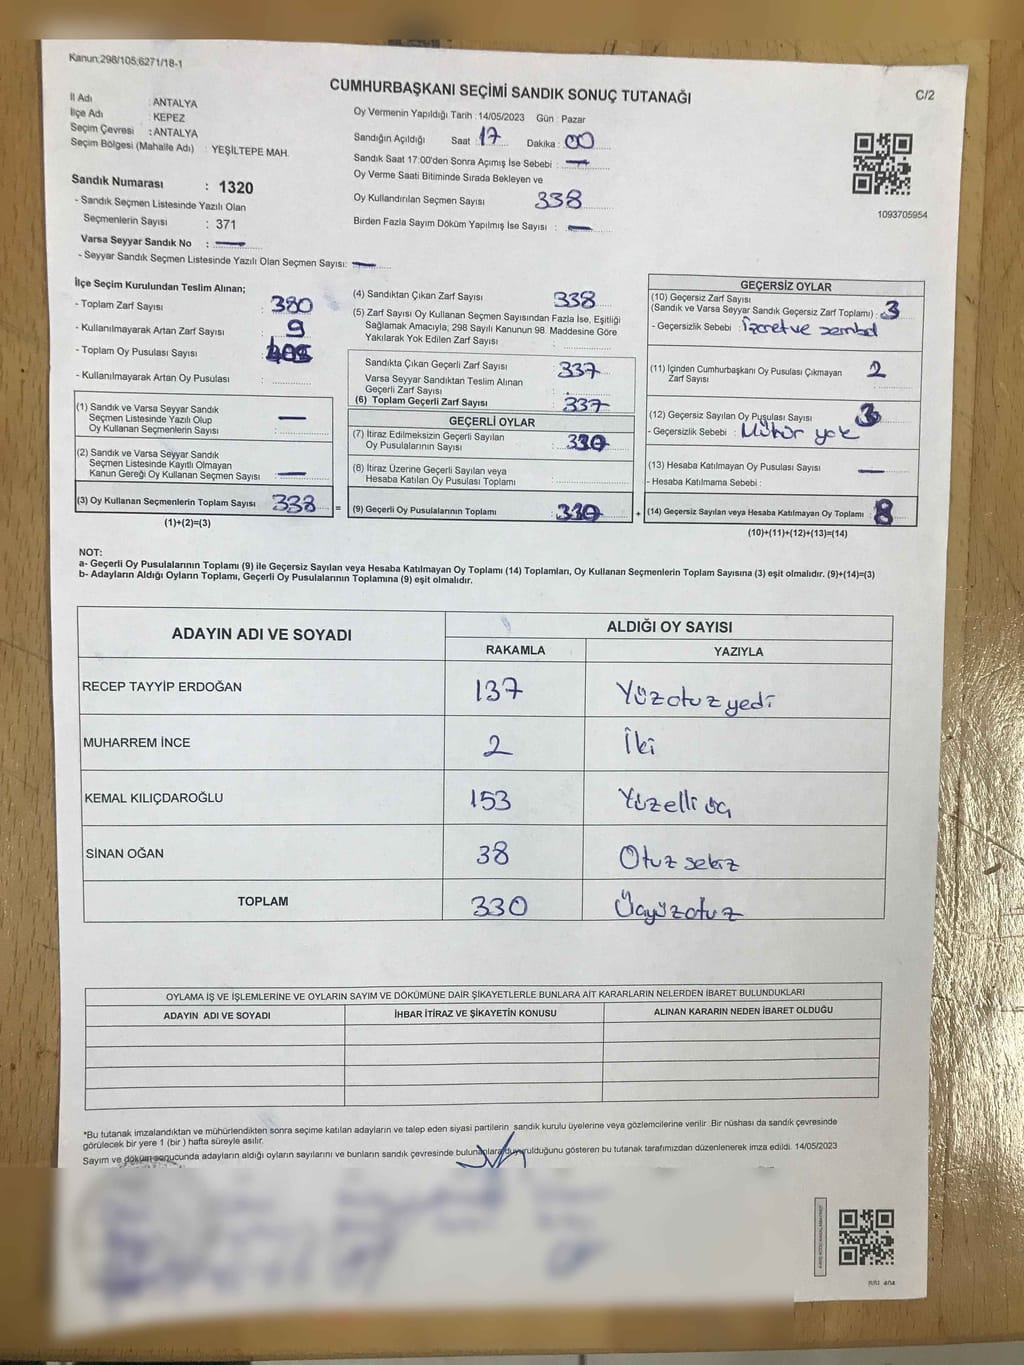 Kanun;298/105;6271/18-1
CUMHURBAŞKANI SEÇİMİ SANDIK SONUÇ TUTANAĞI
C/2
İl Adı : ANTALYA
İlçe Adı : KEPEZ
Seçim Çevresi : ANTALYA
Seçim Bölgesi (Mahalle Adı) : YEŞİLTEPE MAH.
Sandık Numarası : 1320
- Sandık Seçmen Listesinde Yazılı Olan
Seçmenlerin Sayısı : 371
Varsa Seyyar Sandık No : —
- Seyyar Sandık Seçmen Listesinde Yazılı Olan Seçmen Sayısı: —
Oy Vermenin Yapıldığı Tarih : 14/05/2023 Gün : Pazar
Sandığın Açıldığı Saat 17 Dakika : 00
Sandık Saat 17:00'den Sonra Açımış İse Sebebi : —
Oy Verme Saati Bitiminde Sırada Bekleyen ve
Oy Kullandırılan Seçmen Sayısı 338
Birden Fazla Sayım Döküm Yapılmış İse Sayısı : —
1093705954
İlçe Seçim Kurulundan Teslim Alınan;
- Toplam Zarf Sayısı : 380
- Kullanılmayarak Artan Zarf Sayısı : 9
- Toplam Oy Pusulası Sayısı :
- Kullanılmayarak Artan Oy Pusulası :
(1) Sandık ve Varsa Seyyar Sandık
Seçmen Listesinde Yazılı Olup
Oy Kullanan Seçmenlerin Sayısı : —
(2) Sandık ve Varsa Seyyar Sandık
Seçmen Listesinde Kayıtlı Olmayan
Kanun Gereği Oy Kullanan Seçmen Sayısı : —
(3) Oy Kullanan Seçmenlerin Toplam Sayısı 338 =
(1)+(2)=(3)
(4) Sandıktan Çıkan Zarf Sayısı 338
(5) Zarf Sayısı Oy Kullanan Seçmen Sayısından Fazla İse, Eşitliği
Sağlamak Amacıyla; 298 Sayılı Kanunun 98. Maddesine Göre
Yakılarak Yok Edilen Zarf Sayısı :
Sandıkta Çıkan Geçerli Zarf Sayısı : 337
Varsa Seyyar Sandıktan Teslim Alınan
Geçerli Zarf Sayısı :
(6) Toplam Geçerli Zarf Sayısı 337
GEÇERLİ OYLAR
(7) İtiraz Edilmeksizin Geçerli Sayılan
Oy Pusulalarının Sayısı : 330
(8) İtiraz Üzerine Geçerli Sayılan veya
Hesaba Katılan Oy Pusulası Toplamı :
(9) Geçerli Oy Pusulalarının Toplamı : 330 +
GEÇERSİZ OYLAR
(10) Geçersiz Zarf Sayısı
(Sandık ve Varsa Seyyar Sandık Geçersiz Zarf Toplamı) : 3
- Geçersizlik Sebebi : İşaret ve sembol
(11) İçinden Cumhurbaşkanı Oy Pusulası Çıkmayan
Zarf Sayısı : 2
(12) Geçersiz Sayılan Oy Pusulası Sayısı : 3
- Geçersizlik Sebebi : Mühür yok
(13) Hesaba Katılmayan Oy Pusulası Sayısı : —
- Hesaba Katılmama Sebebi :
(14) Geçersiz Sayılan veya Hesaba Katılmayan Oy Toplamı : 8
(10)+(11)+(12)+(13)=(14)
NOT:
a- Geçerli Oy Pusulalarının Toplamı (9) ile Geçersiz Sayılan veya Hesaba Katılmayan Oy Toplamı (14) Toplamları, Oy Kullanan Seçmenlerin Toplam Sayısına (3) eşit olmalıdır. (9)+(14)=(3)
b- Adayların Aldığı Oyların Toplamı, Geçerli Oy Pusulalarının Toplamına (9) eşit olmalıdır.
ADAYIN ADI VE SOYADI ALDIĞI OY SAYISI
RAKAMLA YAZIYLA
RECEP TAYYİP ERDOĞAN 137 Yüzotuzyedi
MUHARREM İNCE 2 İki
KEMAL KILIÇDAROĞLU 153 Yüzelli üç
SİNAN OĞAN 38 Otuz sekiz
TOPLAM 330 Üçyüzotuz
OYLAMA İŞ VE İŞLEMLERİNE VE OYLARIN SAYIM VE DÖKÜMÜNE DAİR ŞİKAYETLERLE BUNLARA AİT KARARLARIN NELERDEN İBARET BULUNDUKLARI
ADAYIN ADI VE SOYADI İHBAR İTİRAZ VE ŞİKAYETİN KONUSU ALINAN KARARIN NEDEN İBARET OLDUĞU
*Bu tutanak imzalandıktan ve mühürlendikten sonra seçime katılan adayların ve talep eden siyasi partilerin sandık kurulu üyelerine veya gözlemcilerine verilir. Bir nüshası da sandık çevresinde
görülecek bir yere 1 (bir ) hafta süreyle asılır.
Sayım ve döküm sonucunda adayların aldığı oyların sayılarını ve bunların sandık çevresinde bulunanlara duyurulduğunu gösteren bu tutanak tarafımızdan düzenlenerek imza edildi. 14/05/2023